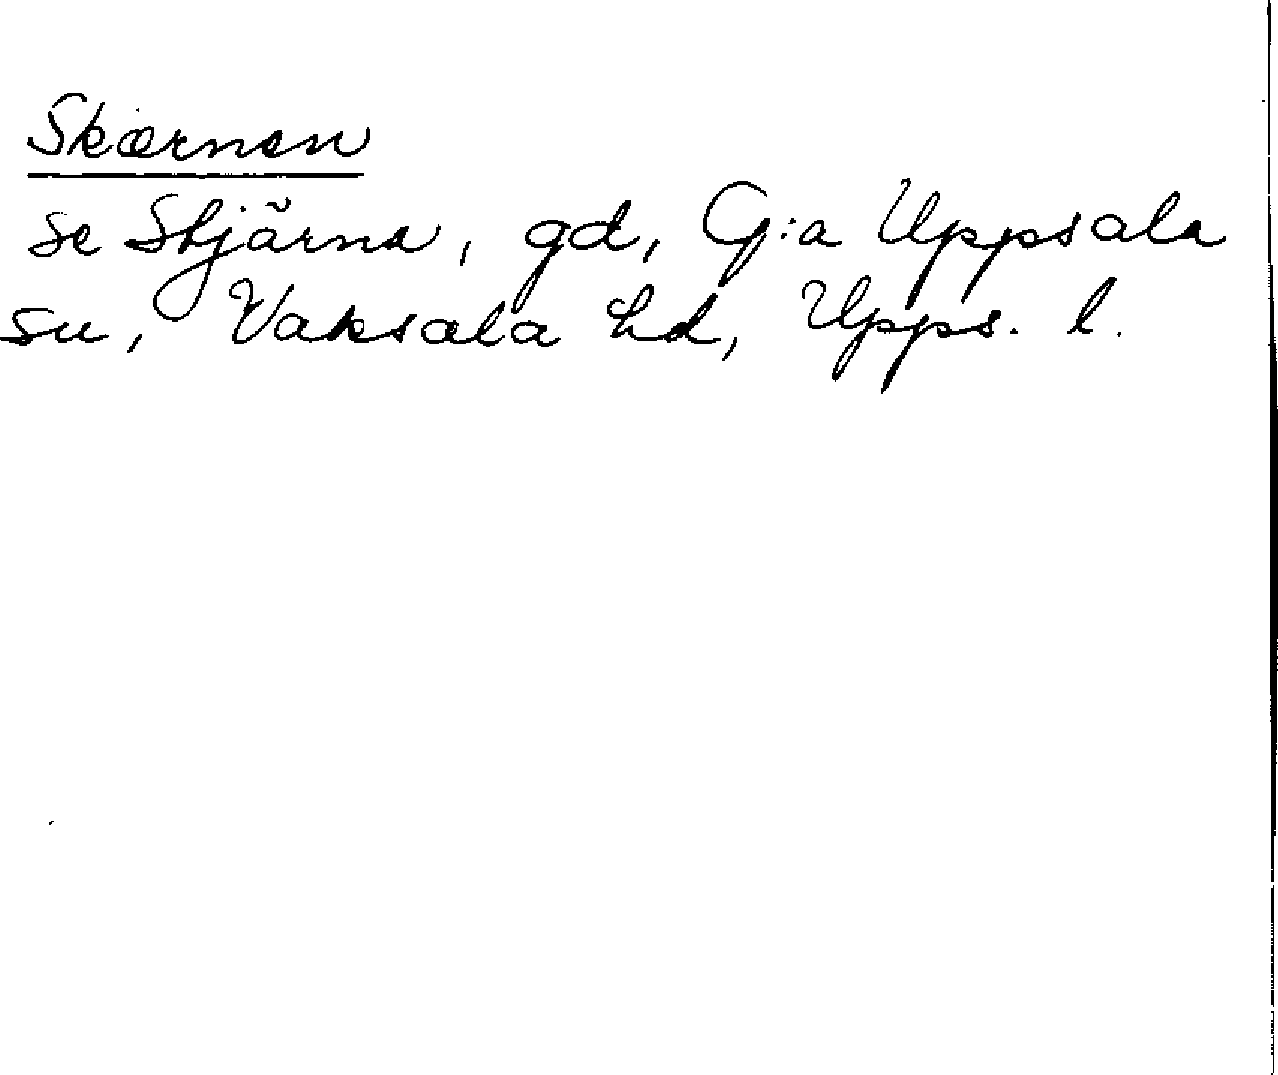 Skærnen
se Stjärna, gd, G:a Uppsala
sn, Vaksala hd, Upps. l.